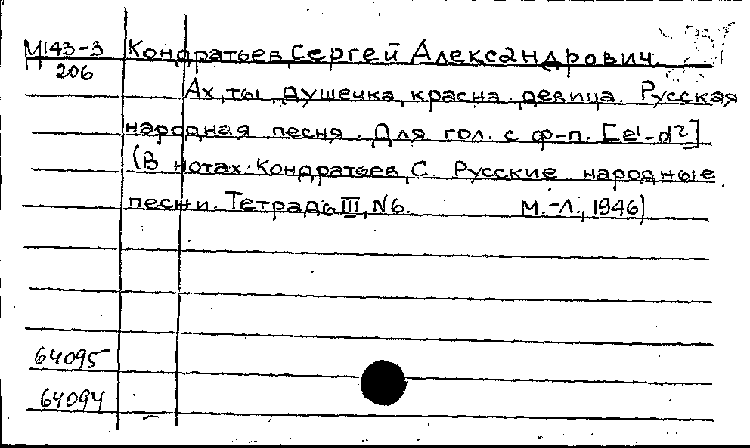 М 143-3 Кондратьев, Сергей Александрович.
206
Ах, ты душечка, красна девица. Русская
народная песня. Для гол. с ф-п. [e¹-d²]
(В нотах: Кондратьев, С. Русские народные
песни. Тетрадь III, N6. М.-Л., 1946)
64095
64094